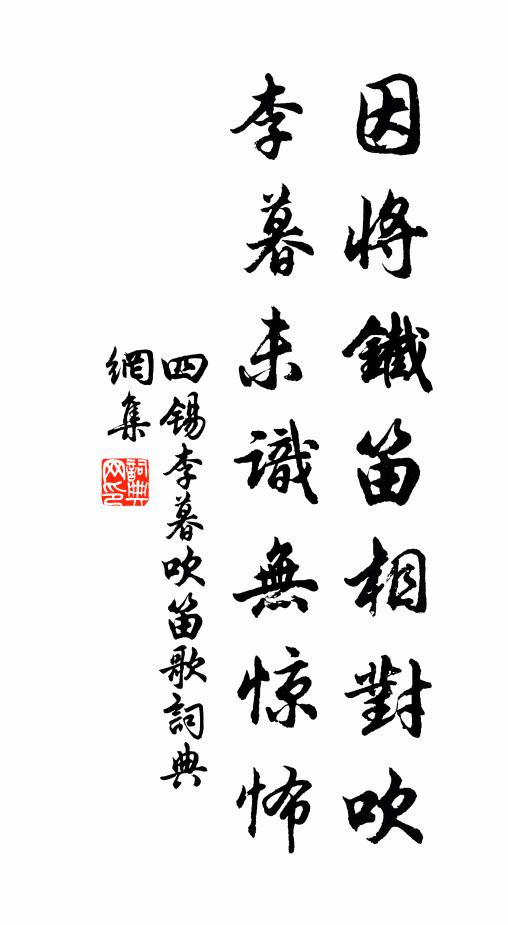 因將鐵笛相對吹
李暮未識無惊怖
四锡李暮吹笛歌詞典
網集
詞典网印